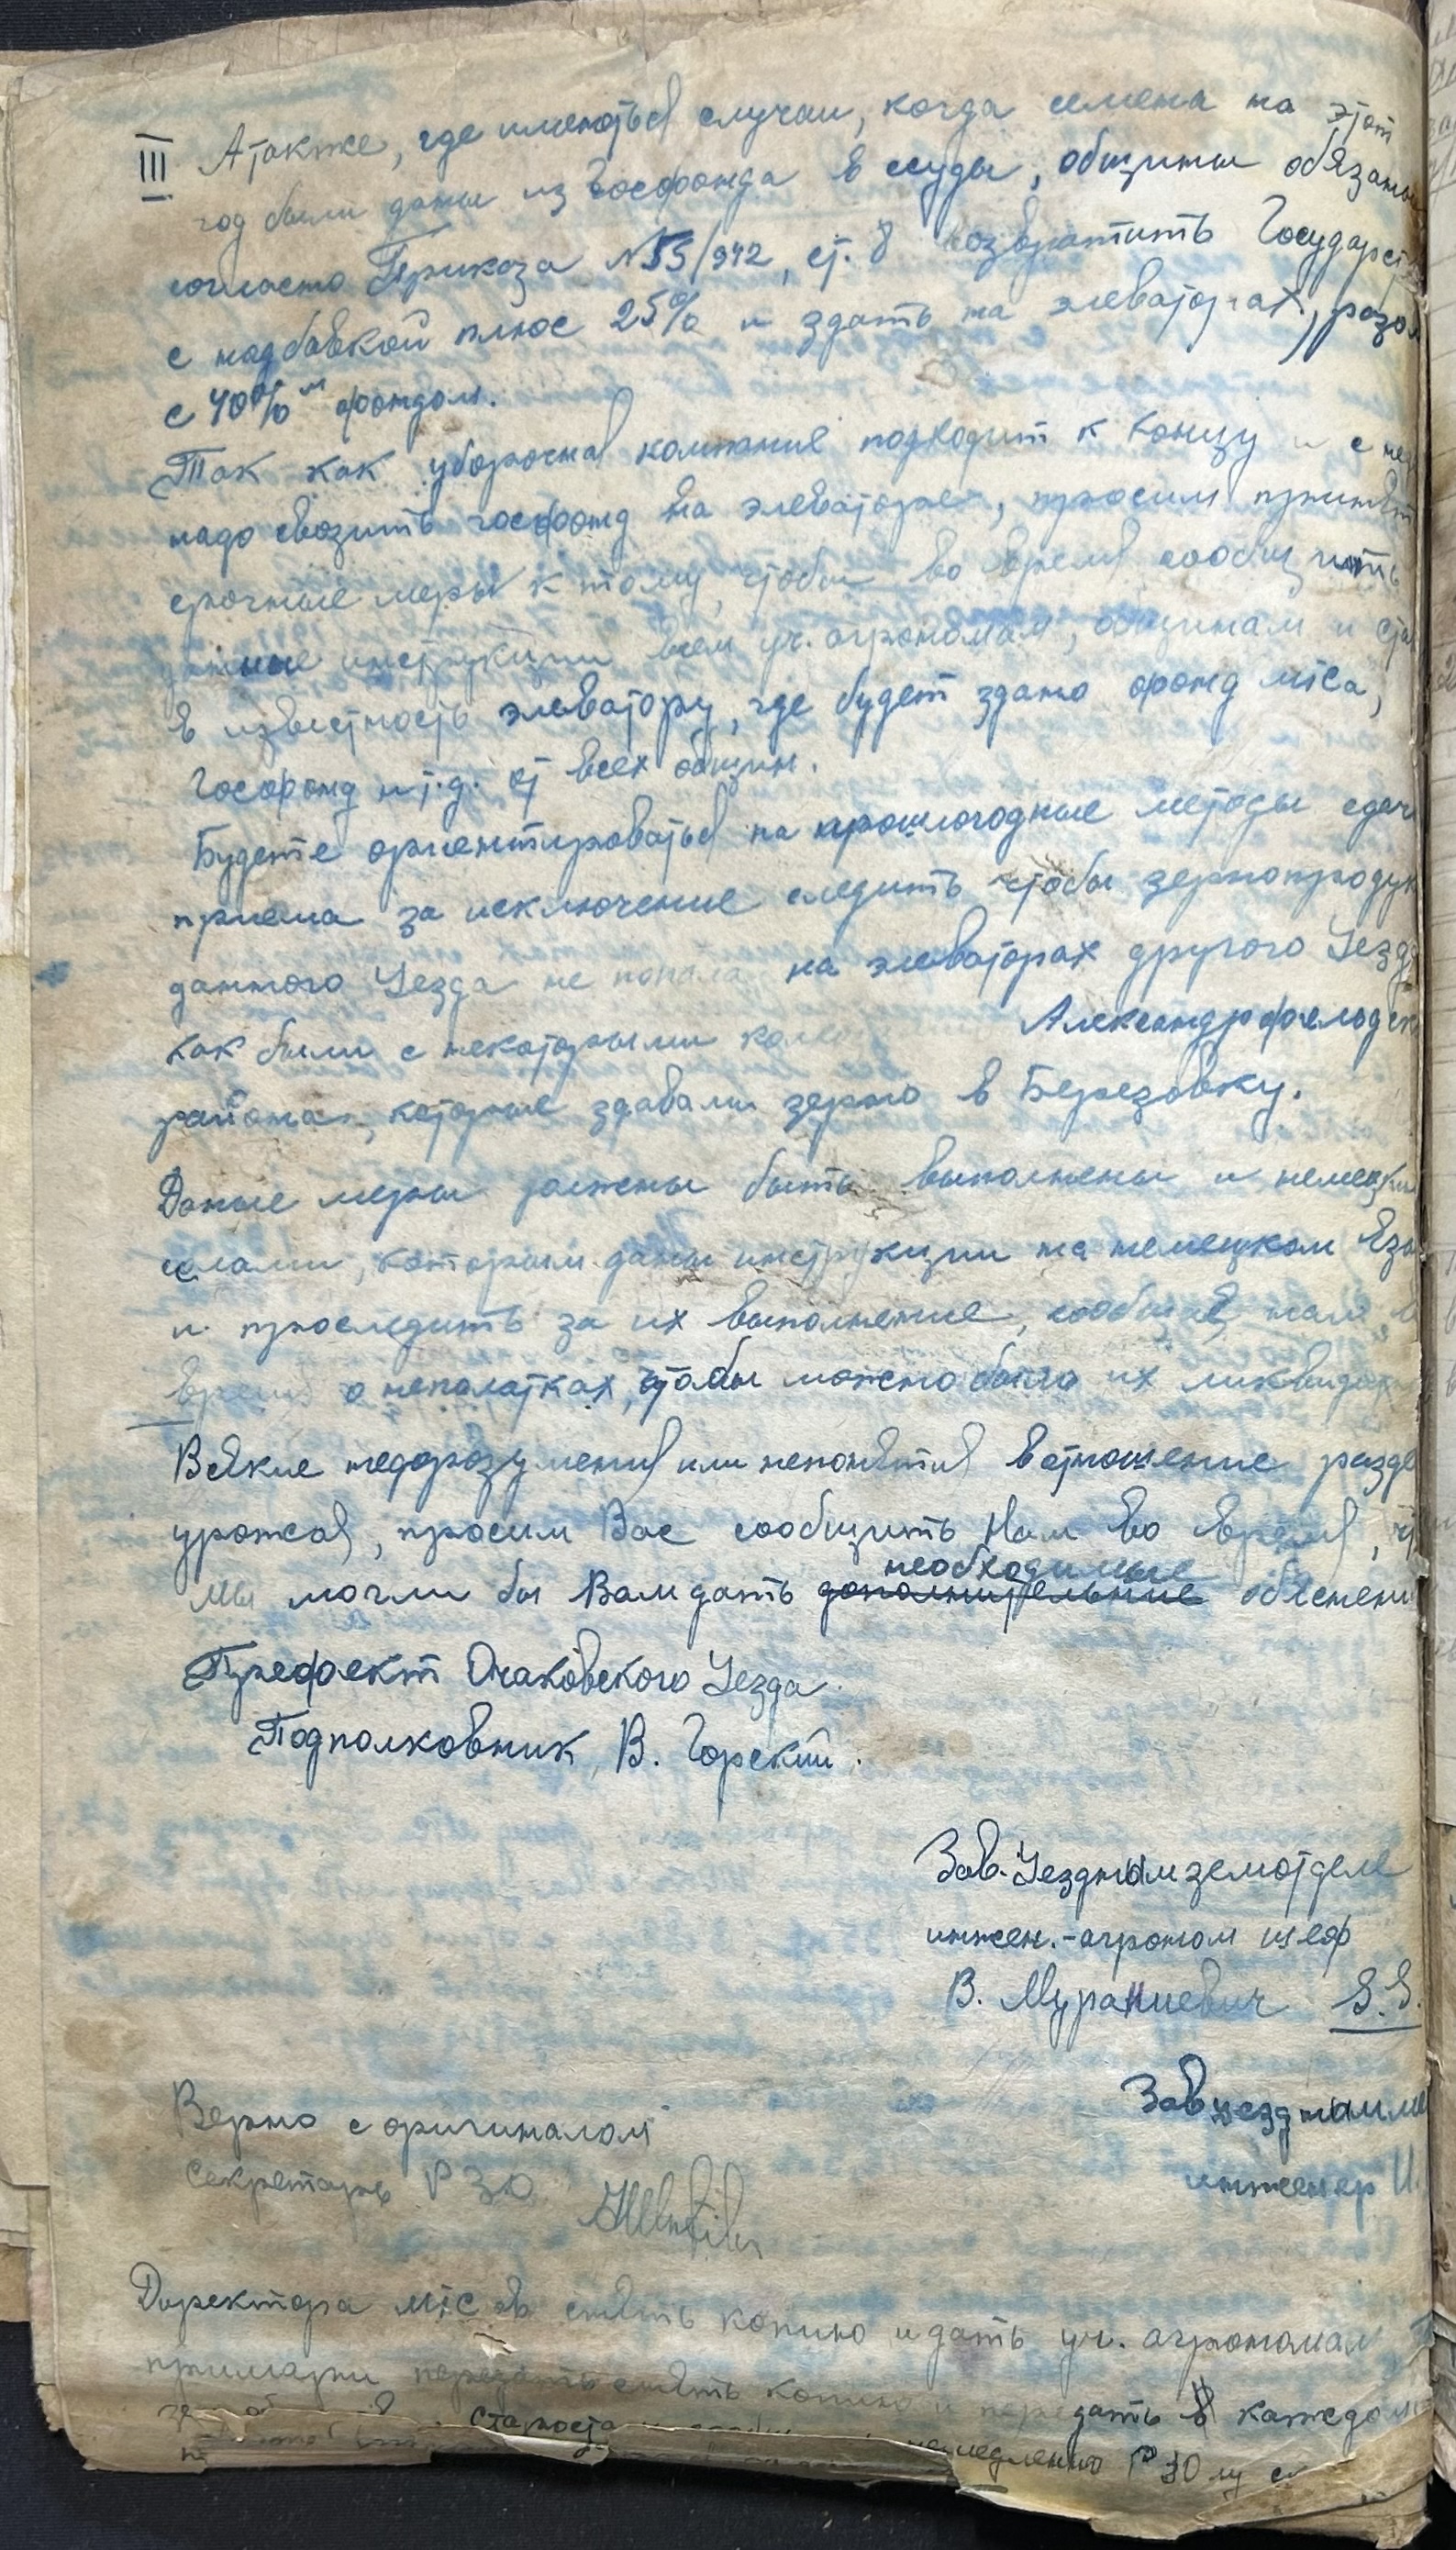 III А також, где имеються случаи, когда семена на этот
год были даны из Госфонда в ссуды, общины обязаны
согласно Приказа №55/942, ст. 8 возвратить Государст
с надбавкой плюс 25% и здать на элеваторах,
с 40%м фондом.
Так как уборочная компания подходит к концу и с
надо свозить госфонд на элеваторе, просим принять
срочные меры к тому, чтобы во время сообщить
данные инструкции всем уч. агрономам, общинам и
в известность элеватору, где будет здано фонд мтса,
Госфонд и т.д. от всех общин.
Будете ориентироваться на прошлогодные методы сдачи
приема за исключение следить чтобы зернопродук
данного Уезда не попала на элеваторах другого Уезда
как были с некоторыми Александрфельдск
района, которые здавали зерно в Березовку.
Даные меры должны быть выполнены и немецкими
селами, которым даны инструкции на немецком язы
и проследить за их выполнение, сообщив нам в
время о неполатках, чтобы можно было их ликвидир
Всякие недоразумения или непонятия вотношение разде
урожая, просим Вас сообщить Нам во время, чт
необходимые
мы могли бы Вам дать дополнительные обяснени
Префект Очаковского Уезда.
Подполковник В. Горский.
Зав. Уездным земотделе
инжен.-агроном шеф
В. Мураниевич
Зав уездным
инженер И.
Верно с оригиналом
Секретарь РЗО
Директора мтс снять копию и дать уч. агрономам
примарии передать снять копию и передать в каждом
староста
немедленно РЗО му